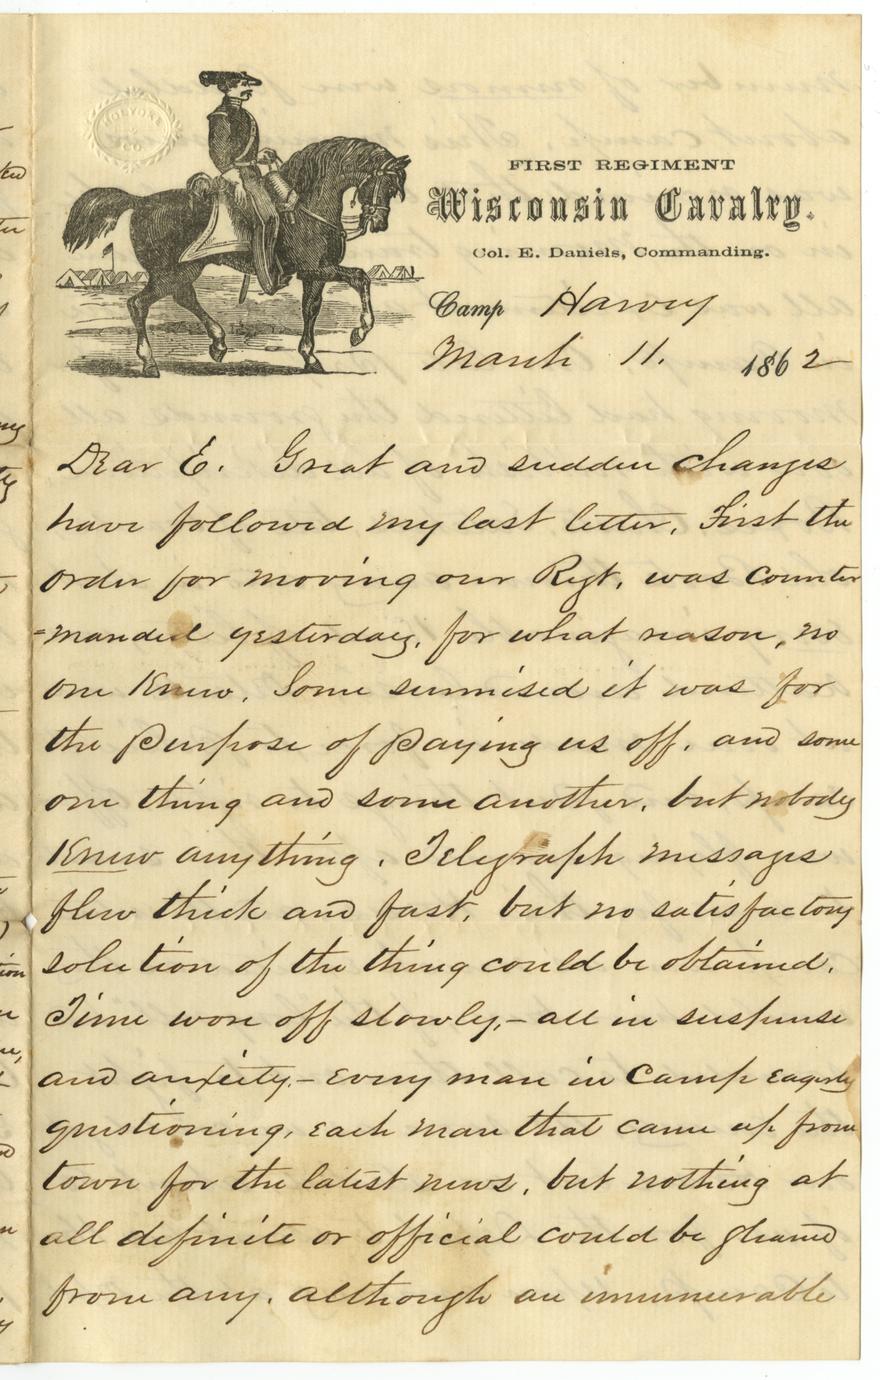 HOLYOKE
CO.
FIRST REGIMENT
Wisconsin Cavalry.
Col. E. Daniels, Commanding.
Camp Harvey
March 11. 1862
Dear E. Great and sudden changes
have followed my last letter. First the
order for moving our Regt. was counter
=manded yesterday, for what reason, no
one Knew. Some surmised it was for
the Purpose of Paying us off, and some
one thing and some another, but nobody
Knew anything. Telegraph messages
flew thick and fast, but no satisfactory
solution of the thing could be obtained.
Time wore off slowly,- all in suspense
and anxiety,- Every man in Camp Eagerly
questioning, each man that came up from
town for the latest news, but nothing at
all definite or official could be gleaned
from any, although an innumerable